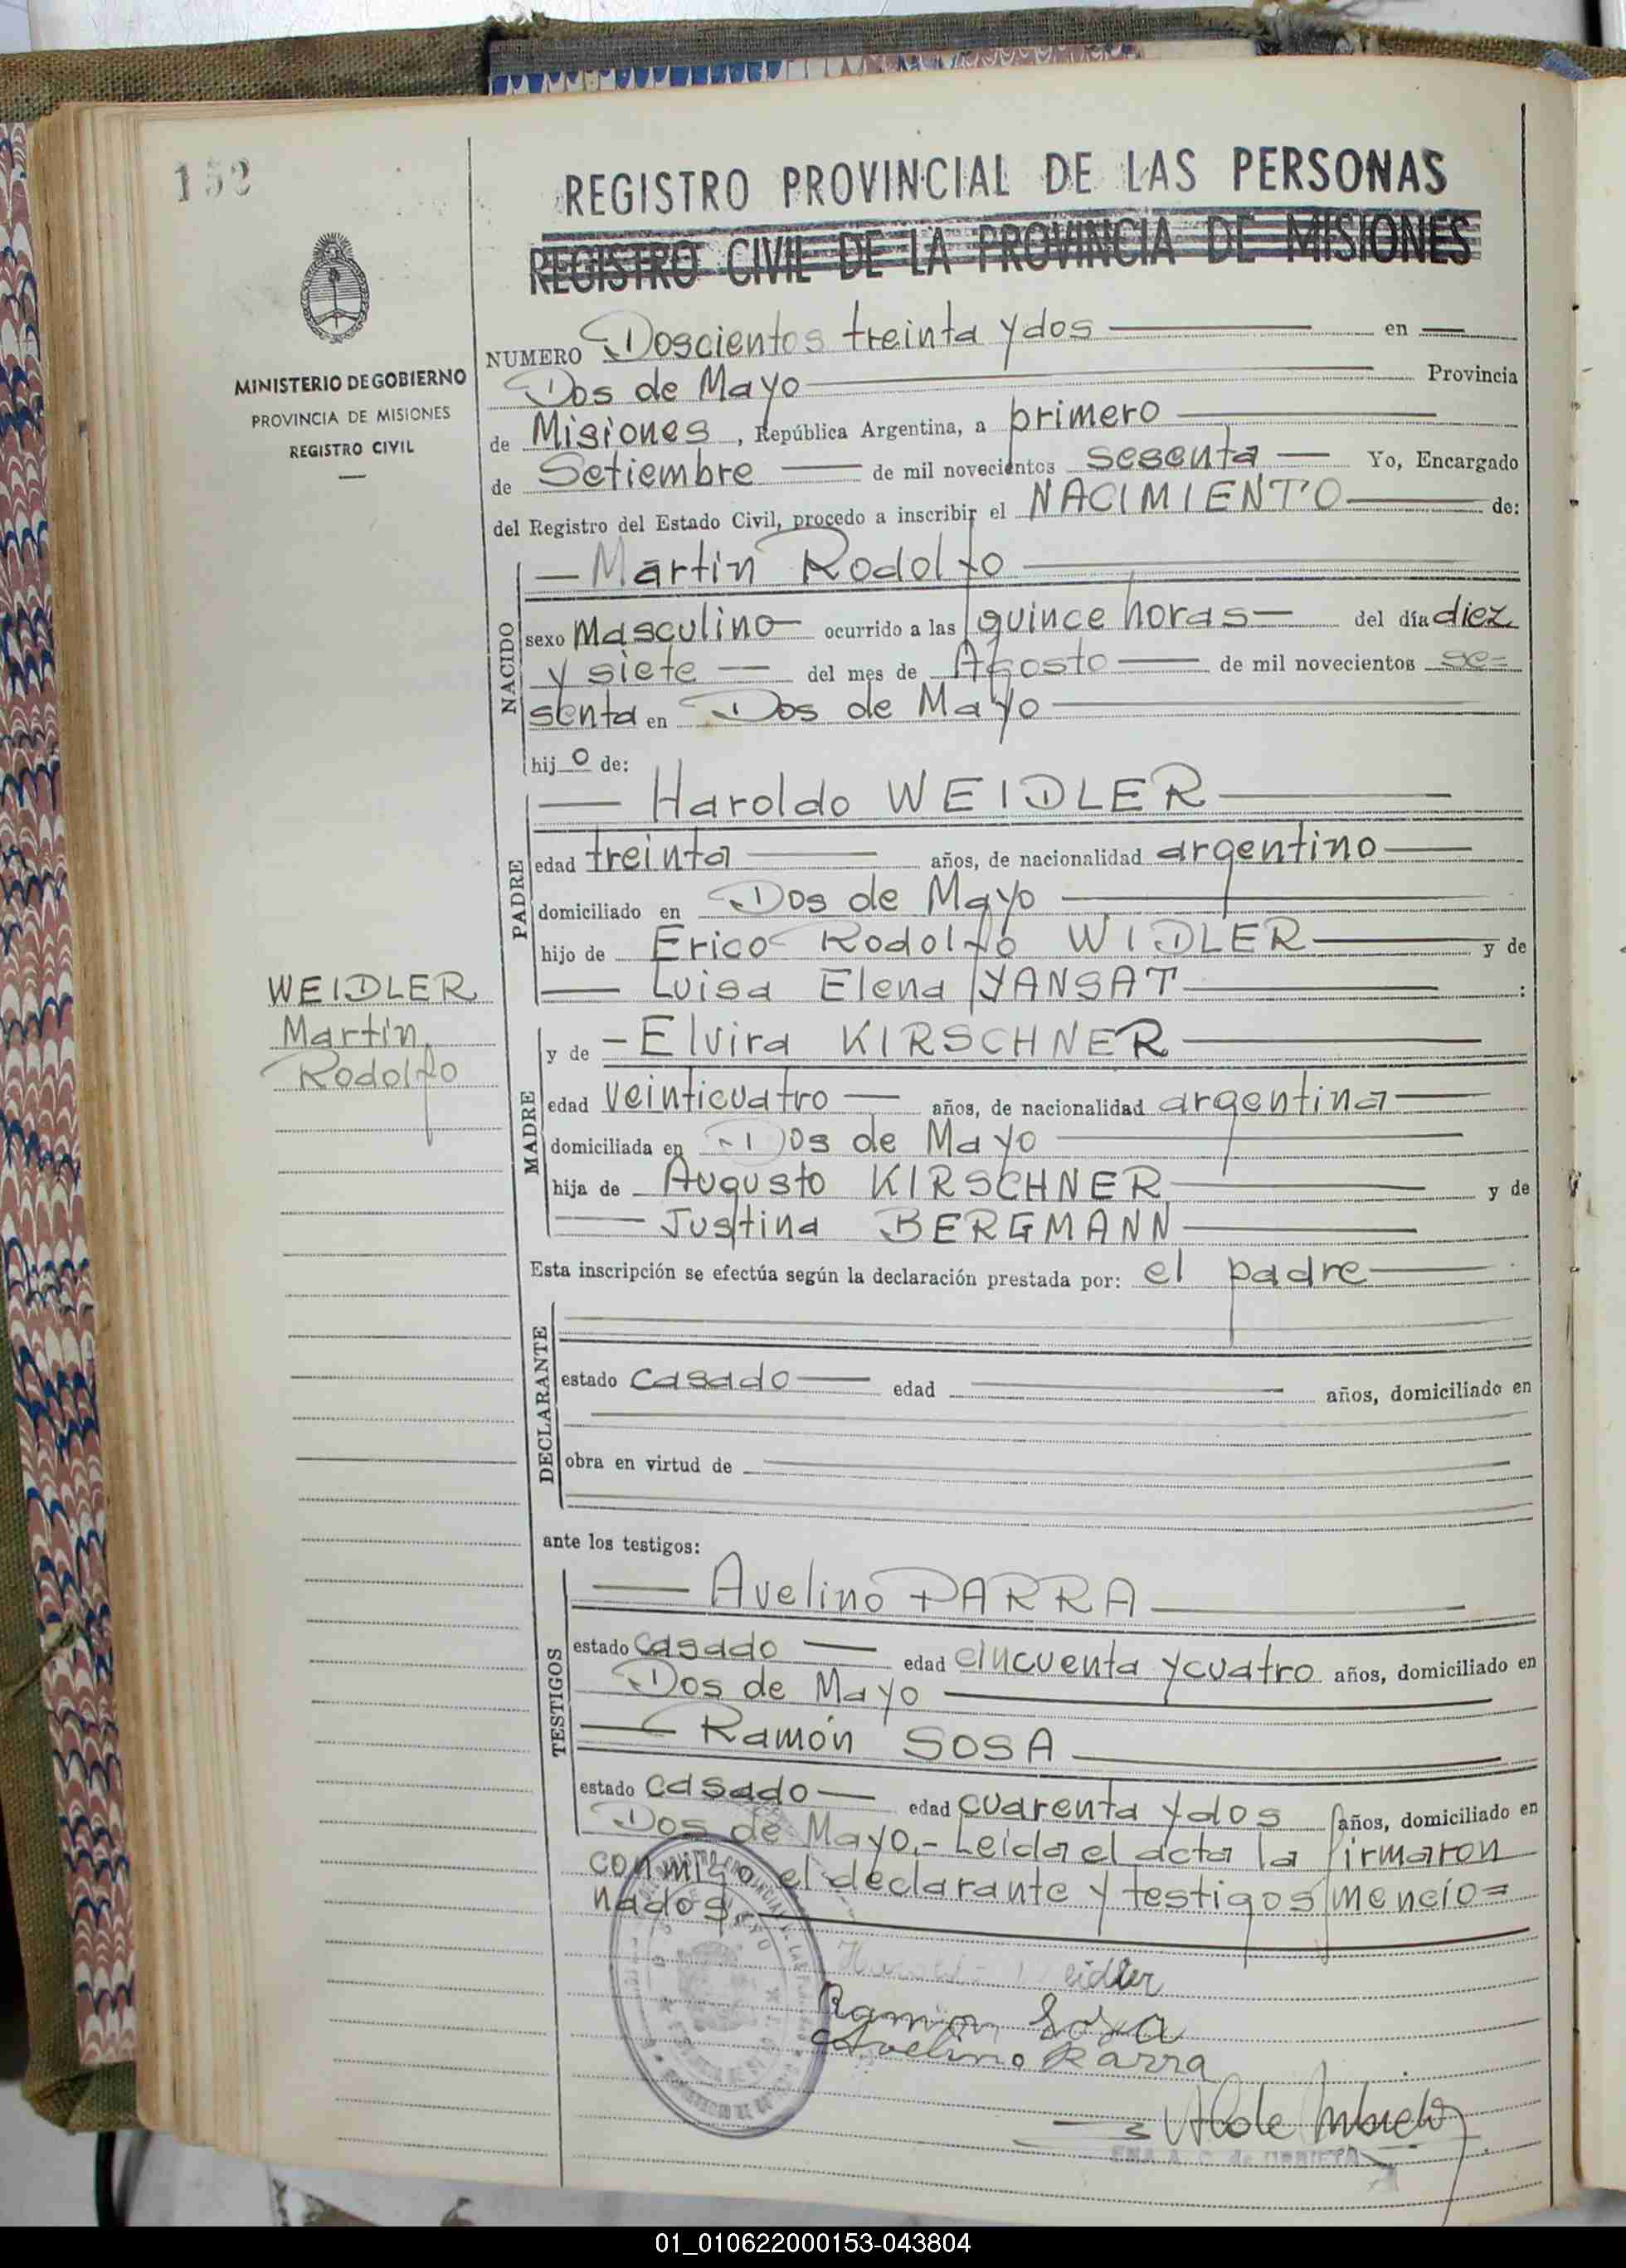 152
REGISTRO PROVINCIAL DE LAS PERSONAS
REGISTRO CIVIL DE LA PROVINCIA DE MISIONES
MINISTERIO DE GOBIERNO
PROVINCIA DE MISIONES
REGISTRO CIVIL
NUMERO Doscientos treinta y dos en
Dos de Mayo Provincia
de Misiones, República Argentina, a primero
de Setiembre de mil novecientos sesenta Yo, Encargado
del Registro del Estado Civil, procedo a inscribir el NACIMIENTO de:
NACIDO
Martin Rodolfo
sexo Masculino ocurrido a las quince horas del día diez
y siete del mes de Agosto de mil novecientos se=
senta en Dos de Mayo
hijo de:
PADRE
Haroldo WEIDLER
edad treinta años, de nacionalidad argentino
domiciliado en Dos de Mayo
hijo de Erico Rodolfo WIDLER y de
Luisa Elena YANSAT :
WEIDLER
Martin
Rodolfo
MADRE
y de Elvira KIRSCHNER
edad veinticuatro años, de nacionalidad argentina
domiciliada en Dos de Mayo
hija de Augusto KIRSCHNER y de
Justina BERGMANN
Esta inscripción se efectúa según la declaración prestada por: el padre
DECLARANTE
estado casado edad años, domiciliado en
obra en virtud de
ante los testigos:
TESTIGOS
Avelino PARRA
estado casado edad cincuenta y cuatro años, domiciliado en
Dos de Mayo
Ramón SOSA
estado casado edad cuarenta y dos años, domiciliado en
Dos de Mayo.- Leida el acta la firmaron
conmigo el declarante y testigos mencio=
nados.
Weidler
Ramon Sosa
Avelino Parra
EMA A. C. de URRIETA
01_010622000153-043804